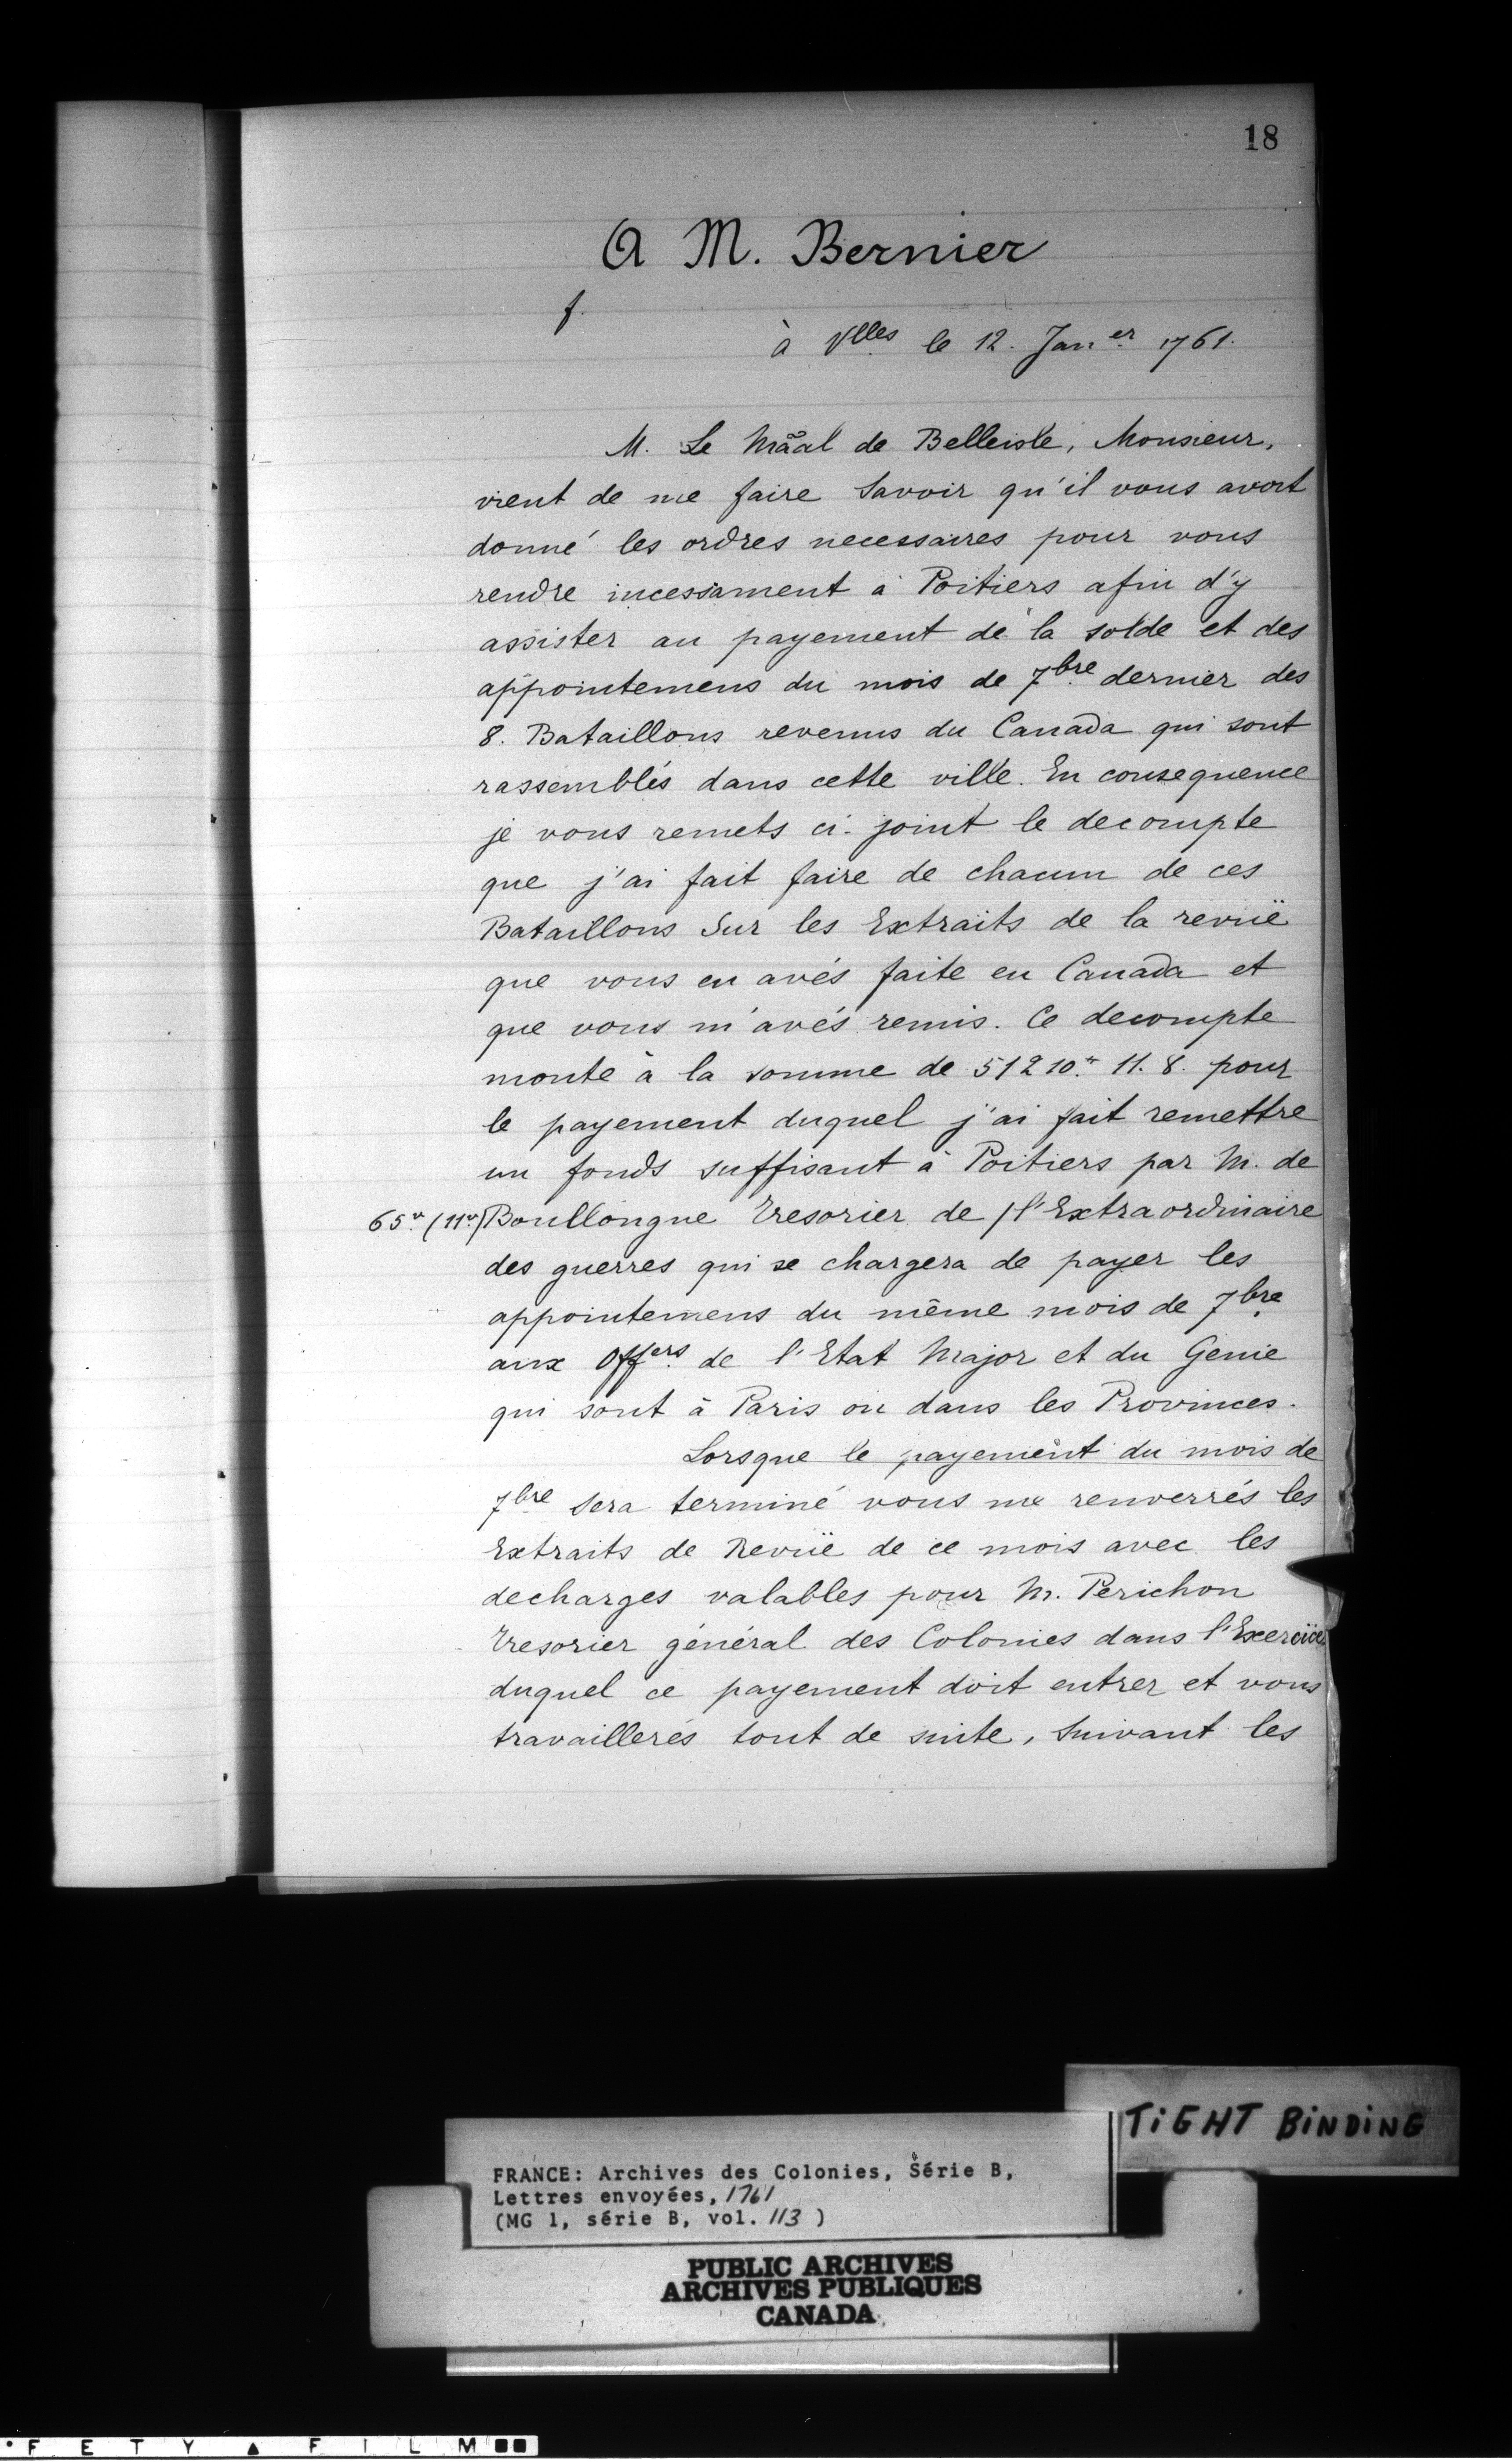 18
A M. Bernier
f.
à Vlles le 12. Janer 1761.
M. Le Maal de Belleisle, Monsieur,
vient de me faire Savoir qu'il vous avoit
donné les ordres necessaires pour vous
rendre incessament à Poitiers afin d'y
assister au payement de la solde et des
appointemens du mois de 7bre dernier des
8. Bataillons revenus du Canada qui sont
rassemblés dans cette ville. En consequence
je vous remets ci-joint le decompte
que j'ai fait faire de chacun de ces
Bataillons Sur les Extraits de la revuë
que vous en avés faite en Canada et
que vous m'avés remis. Ce decompte
monte à la somme de 51210.tt 11. 8. pour
le payement duquel j'ai fait remettre
un fonds suffisant à Poitiers par M. de
65vo (11vo) Boullongne Tresorier de / l'Extraordinaire
des guerres qui se chargera de payer les
appointemens du même mois de 7bre
aux Offers de l'Etat Major et du Genie
qui sont à Paris ou dans les Provinces.
Lorsque le payement du mois de
7bre Sera terminé vous me renverrés les
Extraits de Revuë de ce mois avec les
decharges valables pour M. Perichon
Tresorier général des Colonies dans l'Exercice
duquel ce payement doit entrer et vous
travaillerés tout de suite, Suivant les
TIGHT BINDING
FRANCE: Archives des Colonies, Série B,
Lettres envoyées, 1761
(MG 1, série B, vol. 113 )
PUBLIC ARCHIVES
ARCHIVES PUBLIQUES
CANADA
FETY ▲ FILM